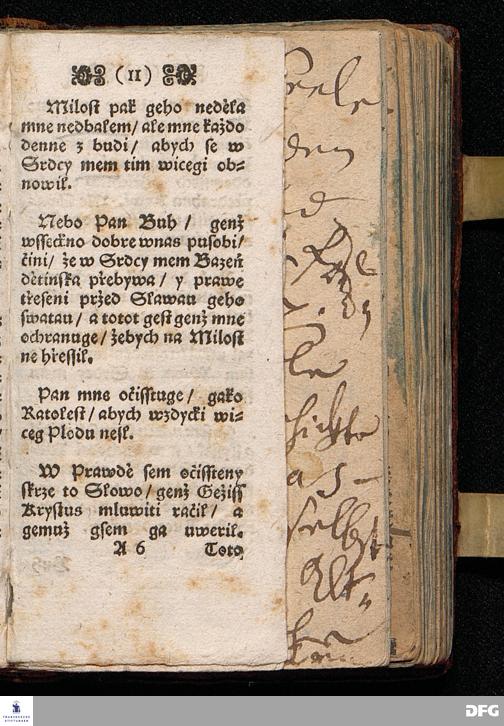 (11)
Milost pak geho neděla
mne nedbalem/ ale mne každo
denne z budi/ abych se w
Srdcy mem tim wicegi ob=
nowil.
Nebo Pan Buh / genž
wssečkno dobre wnas pusobi/
čini/ že w Srdcy mem Bazeň
dětinska přebywa/ y prawe
třeseni přzed Slawau geho
swatau/ a totot gest genž mne
ochranuge/ žebych na Milost
ne hřessil.
Pan mne očisstuge/ gako
Ratolest/ abych wzdycki wi=
ceg Plodu nesl.
W Prawdě sem očissteny
skrze to Slowo/ genž Gežiss
Krystus mluwiti račil/ a
gemuž gsem ga uweril.
A 6 Toto
Seele
den
selbst
FRANCKESCHE
STIFTUNGEN
DFG